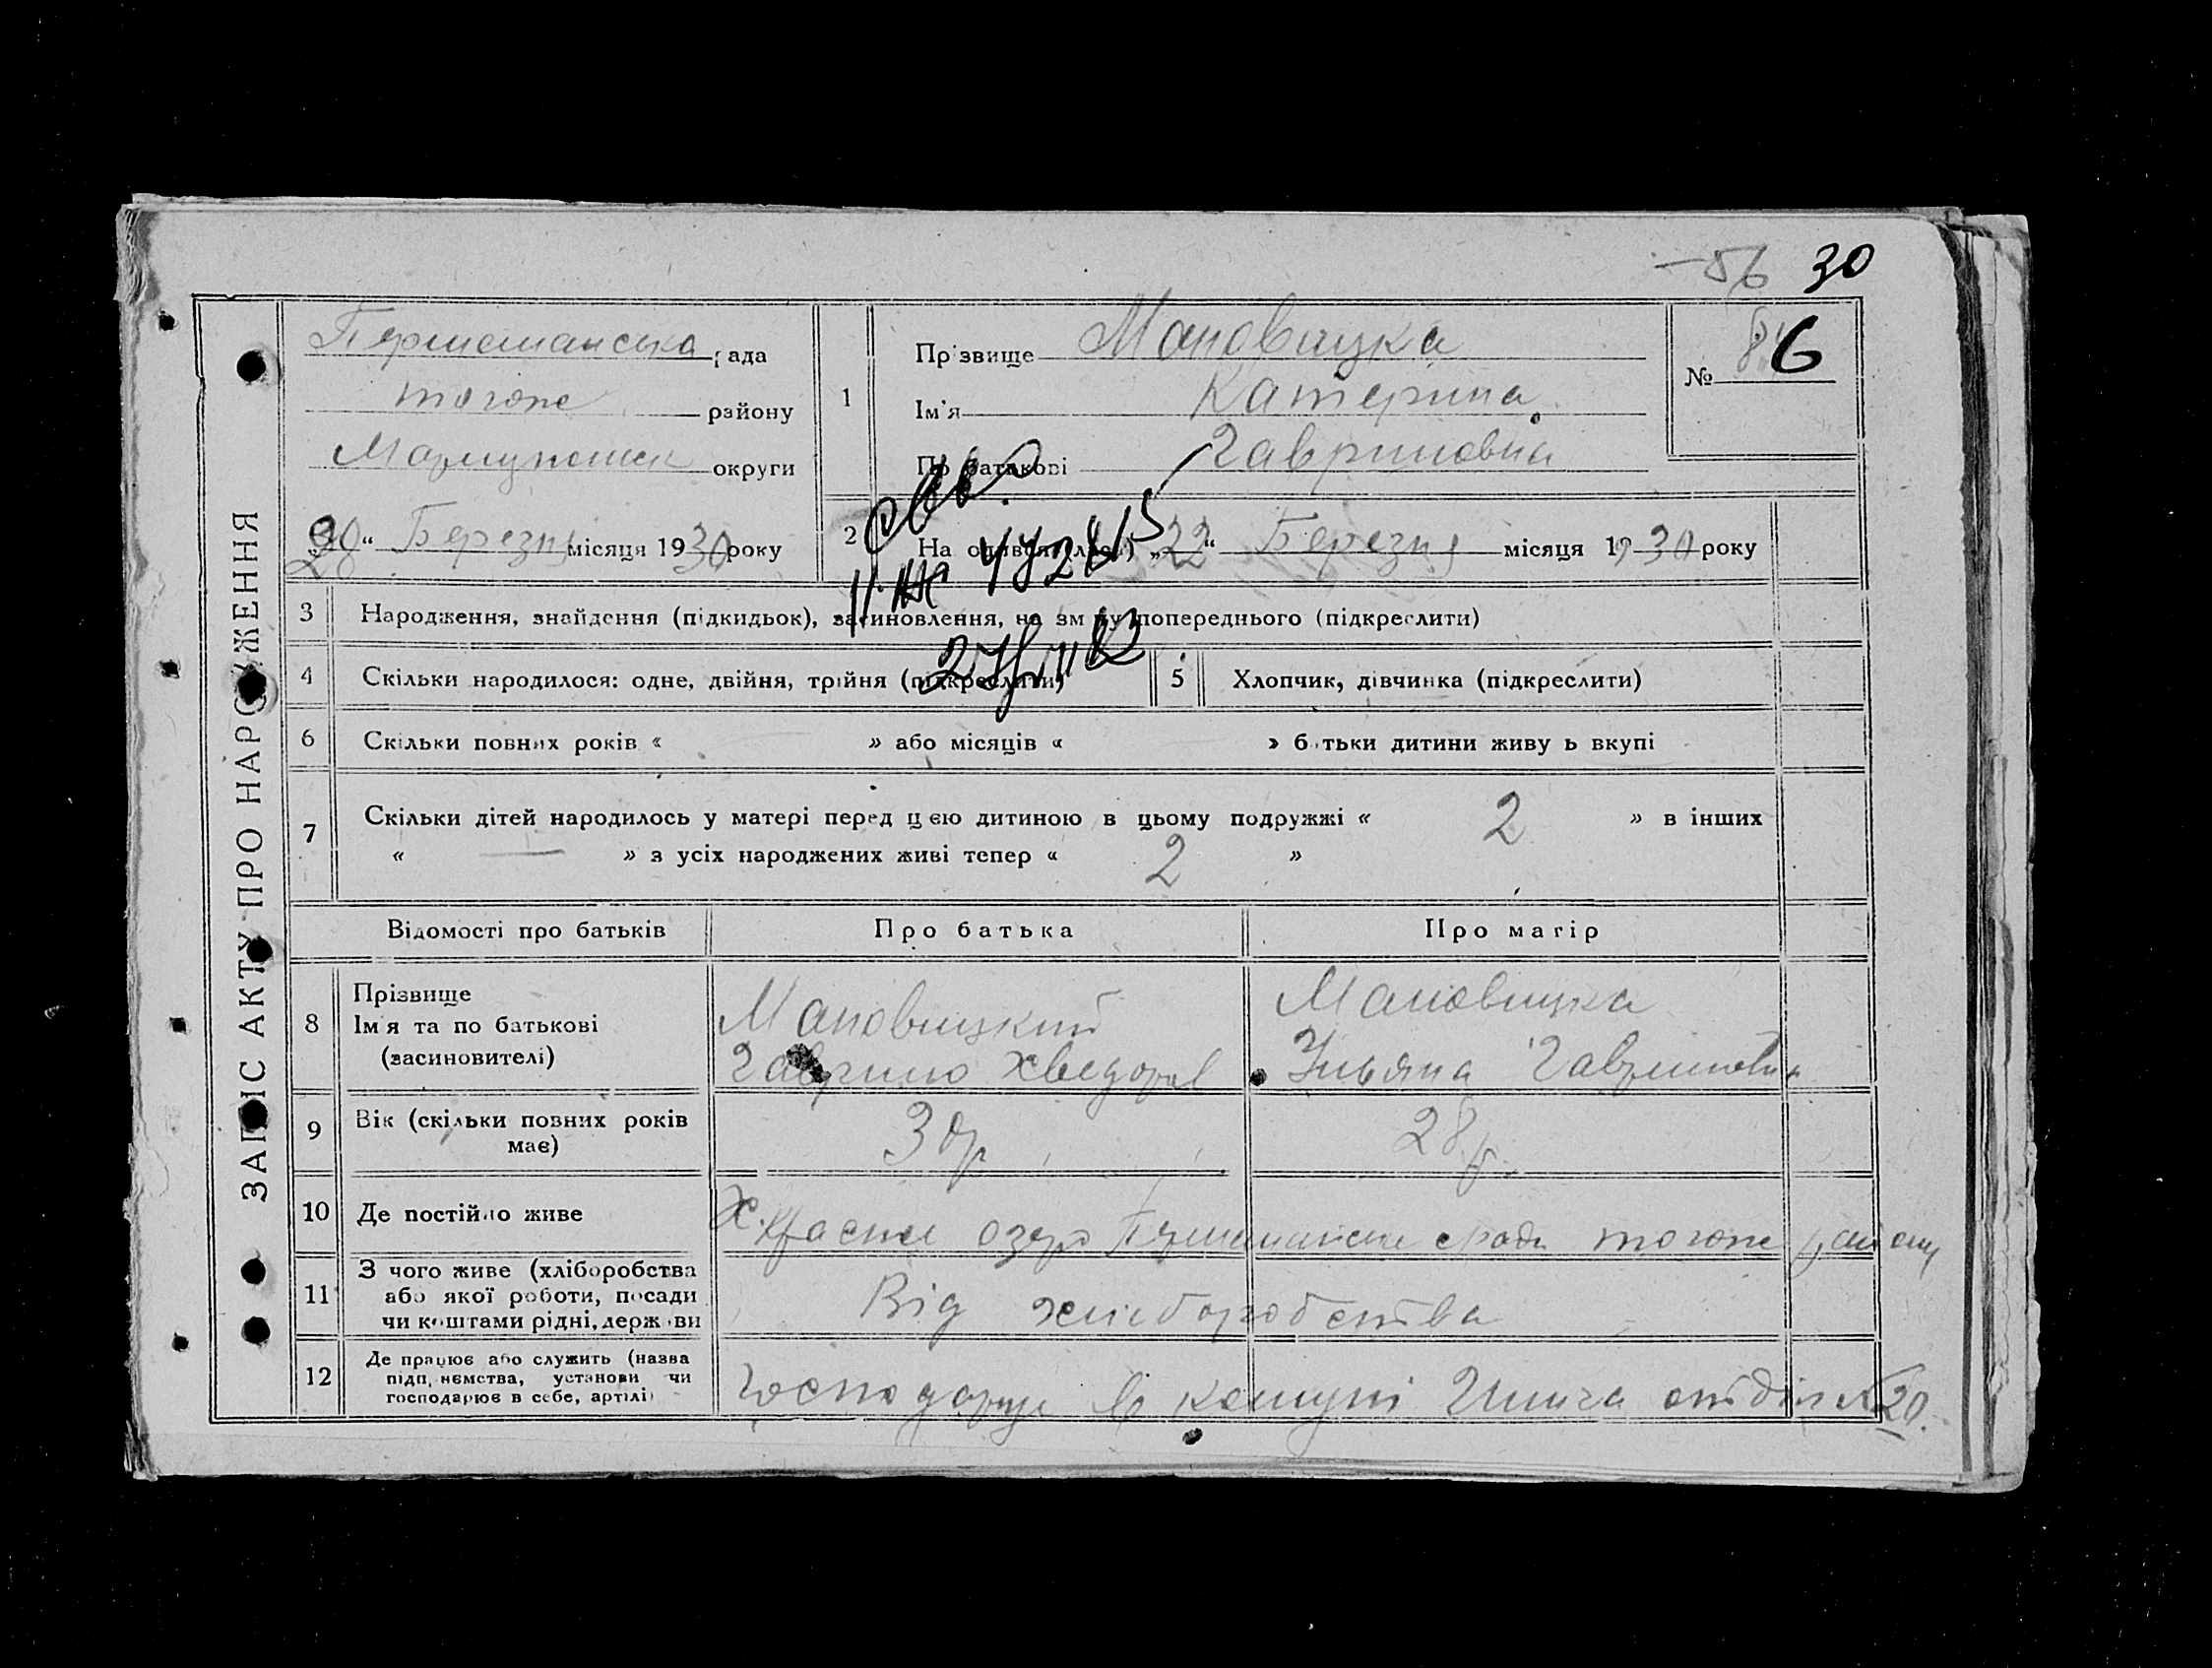 30
ЗАПИС АКТУ ПРО НАРОДЖЕННЯ
рада
тогоже району
округи
Березня місяця 1930 року
1
Прізвище Мановицка
Ім'я Катерина
По батькові Гавриловна
№ 6
2
На „22“ Березня місяця 1930 року
3 Народження, знайдення (підкидьок), засиновлення, на зміну попереднього (підкреслити)
4 Скільки народилося: одне, двійня, трійня (підкреслити)
5 Хлопчик, дівчинка (підкреслити)
6 Скільки повних років « » або місяців « » батьки дитини живуть вкупі
7 Скільки дітей народилось у матері перед цією дитиною в цьому подружжі « 2 » в інших
« — » з усіх народжених живі тепер « 2 »
Відомості про батьків Про батька Про матір
8 Прізвище
Ім'я та по батькові
(засиновителі)
Мановицкий
Гаврило Хведоров
Мановицка
Ульяна Гавриловна
9 Вік (скільки повних років
має)
30 р
28 р.
10 Де постійно живе
Х. озеро ради тогоже району
11 З чого живе (хліборобства
або якої роботи, посади
чи коштами рідні, держави
Від хліборобства
12 Де працює або служить (назва
підприємства, установи чи
господарює в себе, артілі)
Господарує в комуні отділ №20.